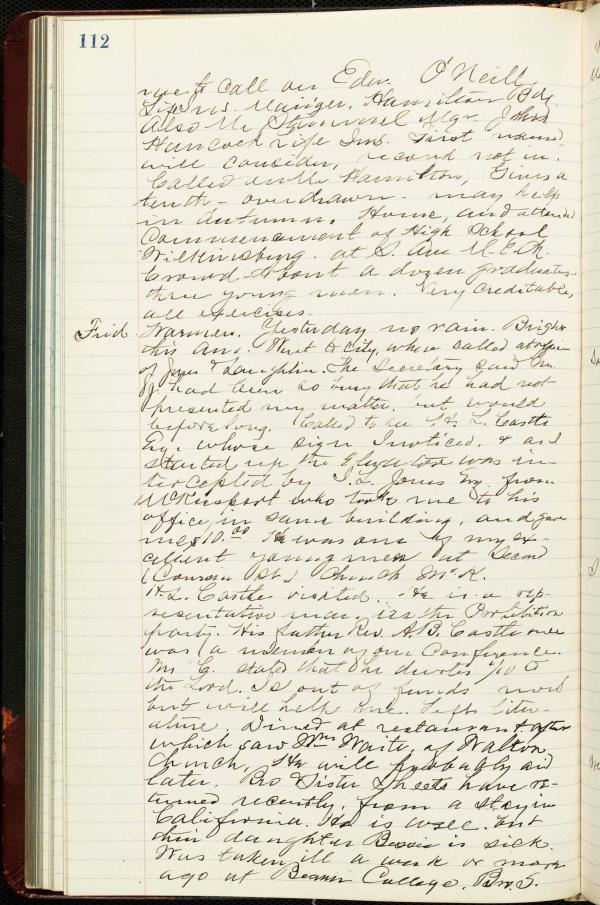 112
call on Edw. O'Neill
Ins. Manger, Hamilton Bdg
Also Mr. Mgr John
Hancock Life Ins. First named,
will consider, second not in.
Called on Mr. Hamilton, Gives a
tenth - overdrawn - may help
in Autumn. Home, and attended
Commencement of High School
Wilkinsburg. at S. Ave M. E. Ch.
Crowd. About a dozen graduates
three young men. Very creditable,
all exercises.
Frid. Warmer. Yesterday no rain. Bright
this A.M. Went to city, where called at office
of Jones & Laughlin. The Secretary said Mr.
J. had been so busy that he had not
presented my matter, but would
before long. Called to see H. L. Castle
Esq. whose sign I noticed, & as I
started up the Elevator was in-
tercepted by Jones Esq. from
McKeesport who took me to his
office, in same building, and gave
me $10.00 He was one of my ex-
cellent young men at Second
(Coursin St.) Church McK.
H. L. Castle visited. He is a rep-
resentative man in the Prohibition
party. His father Rev. A.B. Castle once
was (a member of our Conference.
Mr C. stated that he devotes 1/10 to
the Lord. Is out of funds now
but will help me. Left liter-
ature. Dined at restaurant. after
which saw Wm Waite, of Walton
Church, He will probably aid
later. Bro & Sister Sheets have re-
turned recently, from a stay in
California. He is well. but
their daughter Bessie is sick.
Was taken ill a week or more
ago at Beaver College. Bro. S.